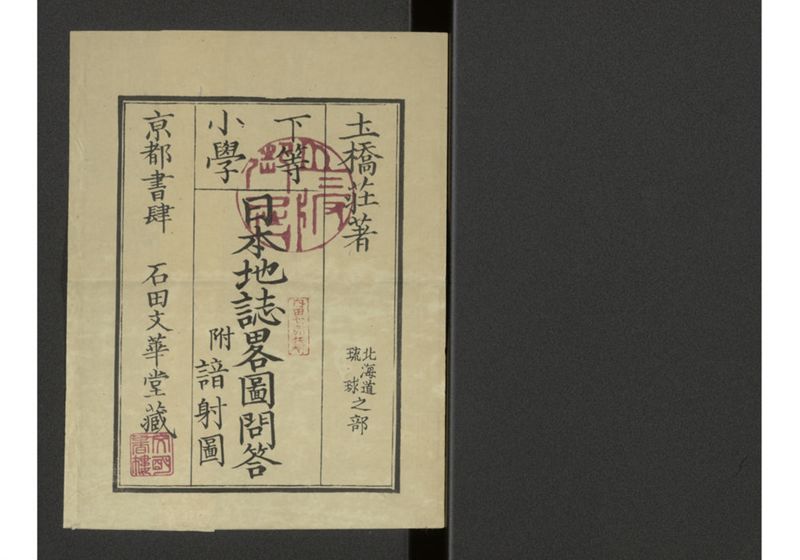 土橋荘著
北海道
琉球
之部
下等
小學
日本地誌畧圖問答
附諳射圖
京都書肆 石田文華堂藏